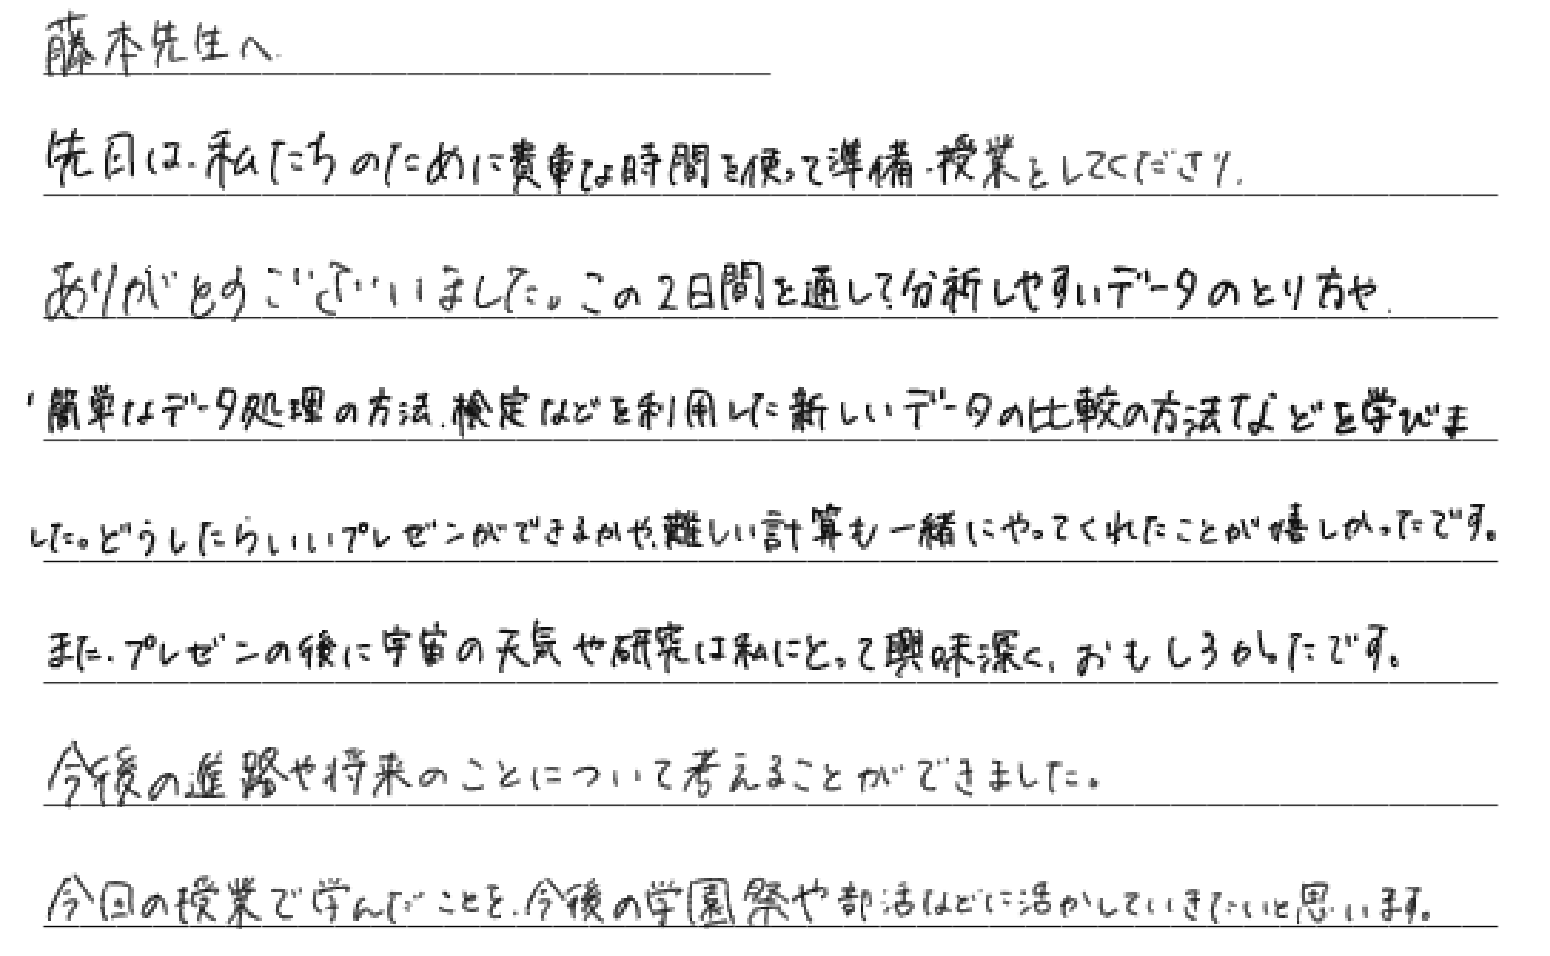 藤本先生へ
先日は、私たちのために貴重な時間を使って準備、授業をしてくださり、
ありがとうございました。この2日間を通して分析しやすいデータのとり方や、
簡単なデータ処理の方法、検定などを利用した新しいデータの比較の方法などを学びま
した。どうしたらいいプレゼンができるかや、難しい計算も一緒にやってくれたことが嬉しかったです。
また、プレゼンの後に宇宙の天気や研究は私にとって興味深く、おもしろかったです。
今後の進路や将来のことについて考えることができました。
今回の授業で学んだことを、今後の学園祭や部活などに活かしていきたいと思います。